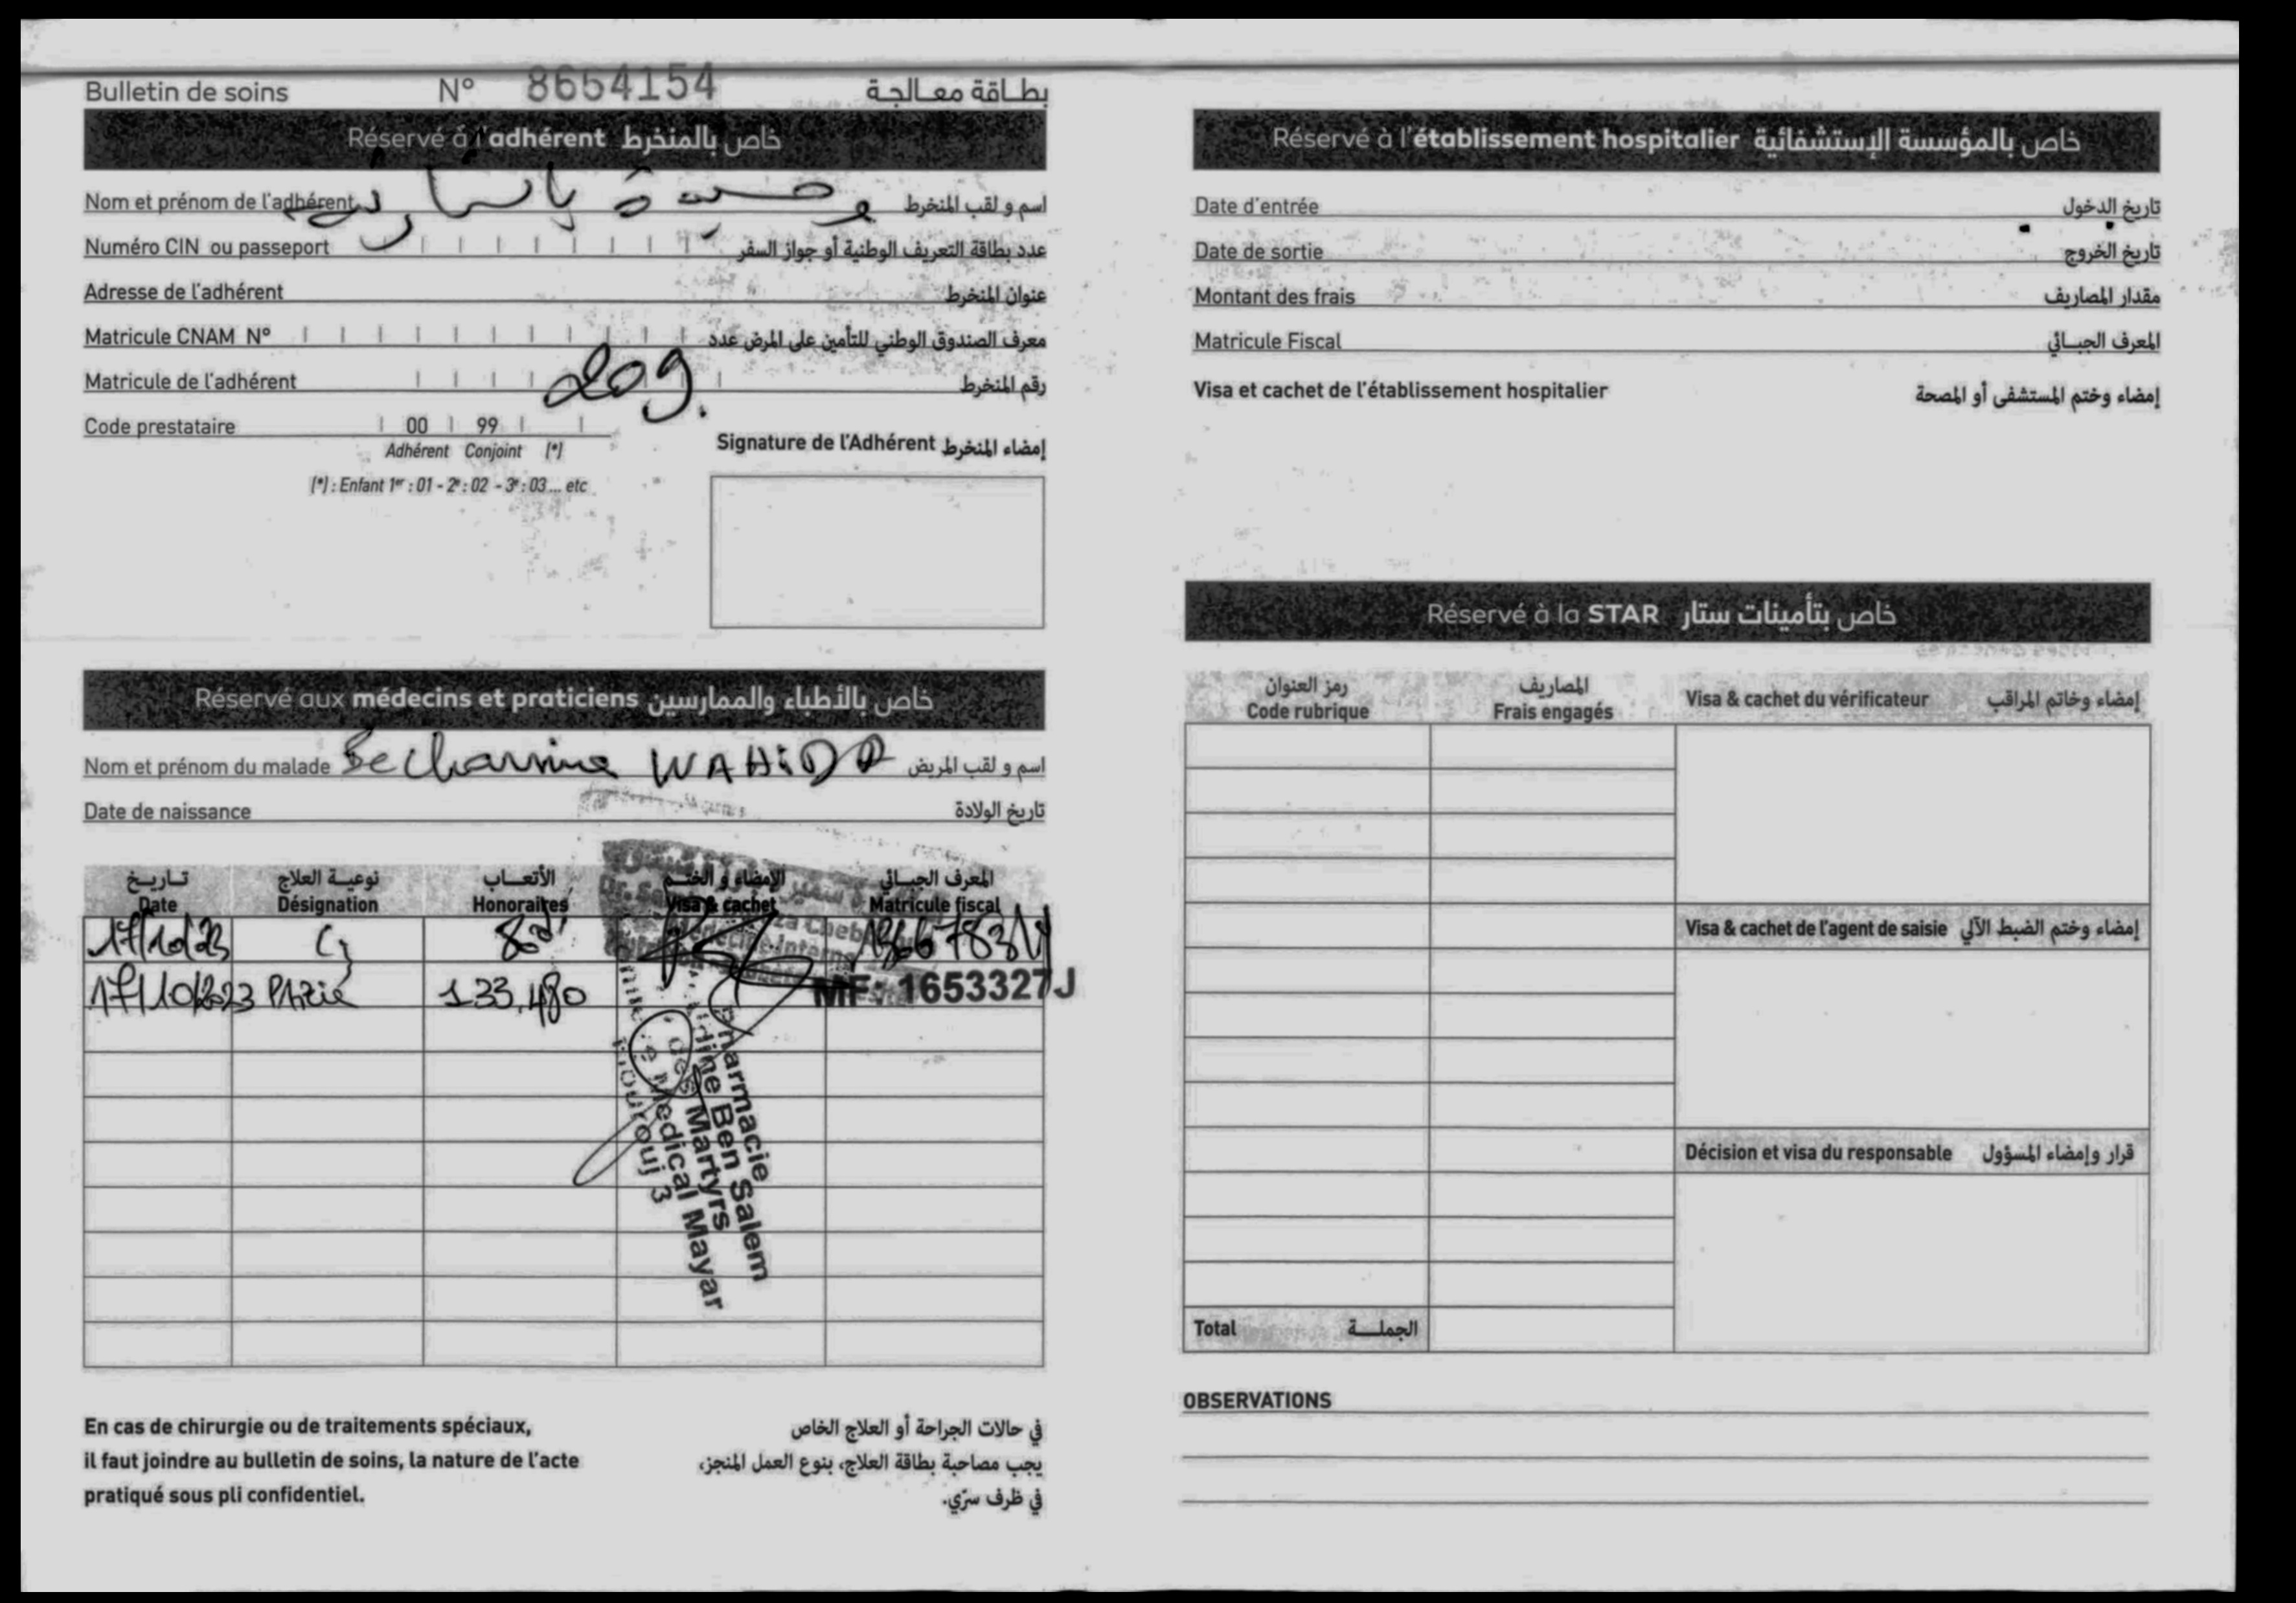 Bulletin de soins N° 8654154 بطاقة معالجة
Réservé à l'adhérent خاص بالمنخرط
Nom et prénom de l'adhérent وحيدة اسم و لقب المنخرط
Numéro CIN ou passeport عدد بطاقة التعريف الوطنية أو جواز السفر
Adresse de l'adhérent عنوان المنخرط
Matricule CNAM N° معرف الصندوق الوطني للتأمين على المرض عدد
Matricule de l'adhérent 209. رقم المنخرط
Code prestataire 00 99
Adhérent Conjoint (*)
(*) : Enfant 1er : 01 - 2e : 02 - 3e : 03 ... etc
Signature de l'Adhérent إمضاء المنخرط
Réservé aux médecins et praticiens خاص بالأطباء والممارسين
Nom et prénom du malade Bechamine WAHIDA اسم و لقب المريض
Date de naissance تاريخ الولادة
تاريخ نوعية العلاج الأتعاب الإمضاء و الختم المعرف الجبائي
Date Désignation Honoraires Visa & cachet Matricule fiscal
17/10/23 80d
17/10/2023 133,480 MF: 1653327J
Pharmacie
Ben Salem
des Martyrs
Medical Mayar
Mourouj 3
En cas de chirurgie ou de traitements spéciaux,
il faut joindre au bulletin de soins, la nature de l'acte
pratiqué sous pli confidentiel.
في حالات الجراحة أو العلاج الخاص
يجب مصاحبة بطاقة العلاج، بنوع العمل المنجز،
في ظرف سرّي.
Réservé à l'établissement hospitalier خاص بالمؤسسة الإستشفائية
Date d'entrée تاريخ الدخول
Date de sortie تاريخ الخروج
Montant des frais مقدار المصاريف
Matricule Fiscal المعرف الجبائي
Visa et cachet de l'établissement hospitalier إمضاء وختم المستشفى أو المصحة
Réservé à la STAR خاص بتأمينات ستار
رمز العنوان المصاريف
Code rubrique Frais engagés Visa & cachet du vérificateur إمضاء وخاتم المراقب
Visa & cachet de l'agent de saisie إمضاء وختم الضبط الآلي
Décision et visa du responsable قرار وإمضاء المسؤول
Total الجملة
OBSERVATIONS